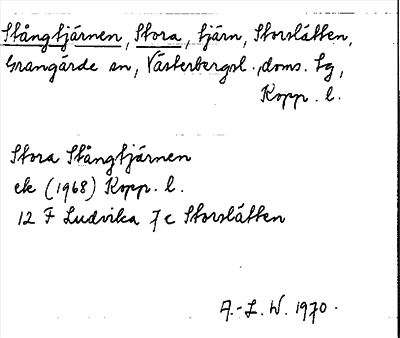 Stångtjärnen, Stora, tjärn, Storslätten,
Grangärde sn, Västerbergsl. doms. tg,
Kopp. l.
Stora Stångtjärnen
ek (1968) Kopp. l.
12 F Ludvika 7 c Storslätten
A.-L. W. 1970.